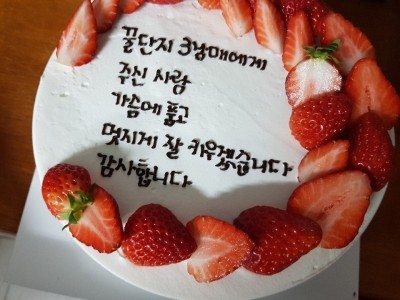 꿀단지 3남매에게
주신 사랑
가슴에 품고
멋지게 잘 키우겠습니다
감사합니다